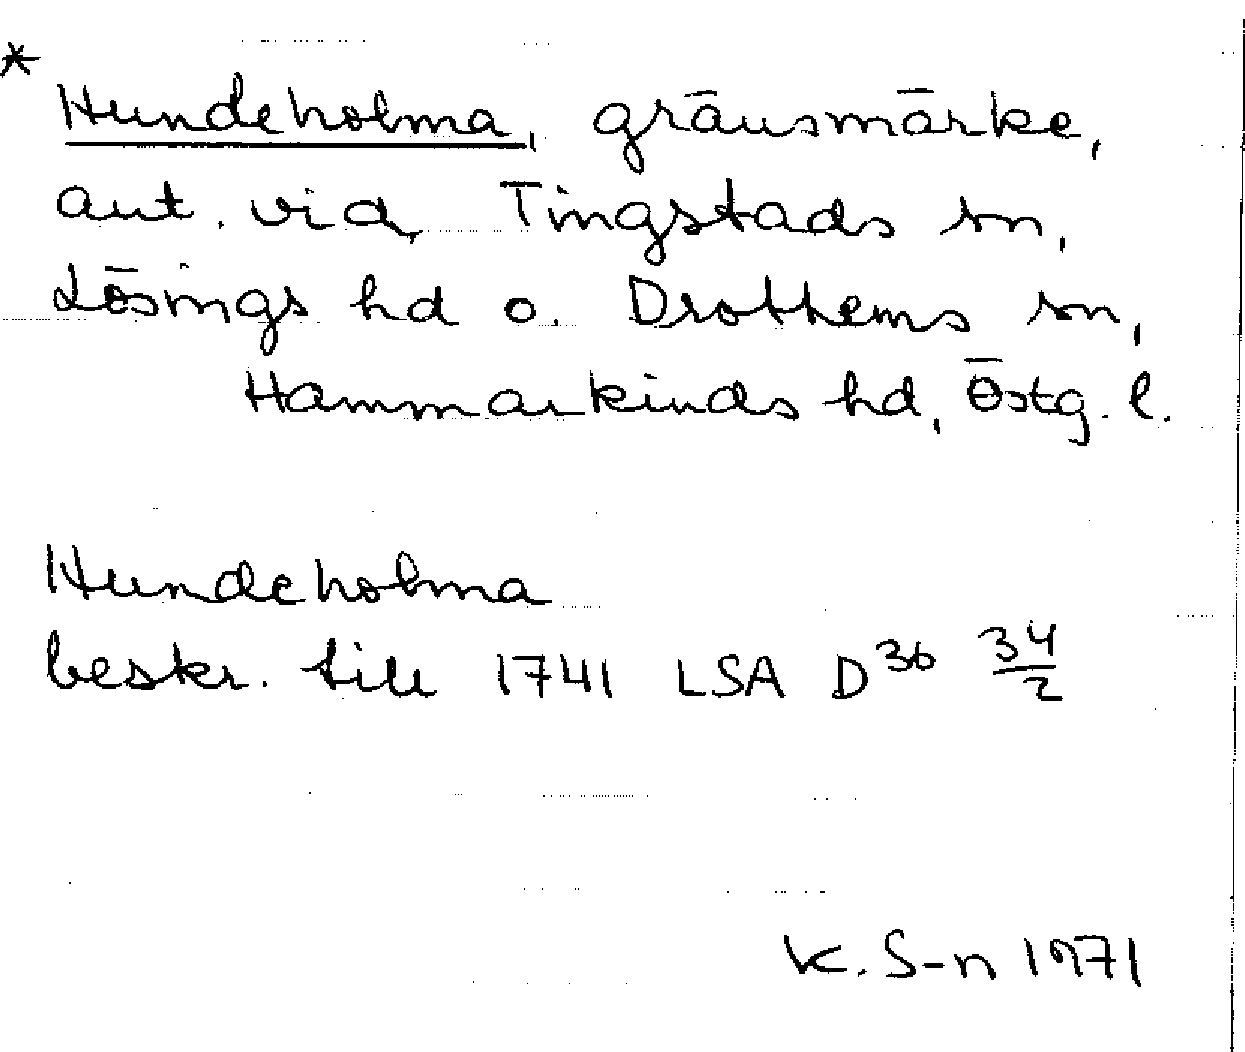 *
Hundeholma, gränsmärke,
ant. vid Tingstads sn,
Lösings hd o. Drothems sn,
Hammarkinds hd, Östg. l.
Hundeholma
beskr. till 1741 LSA D36 34/2
K. S-n 1971